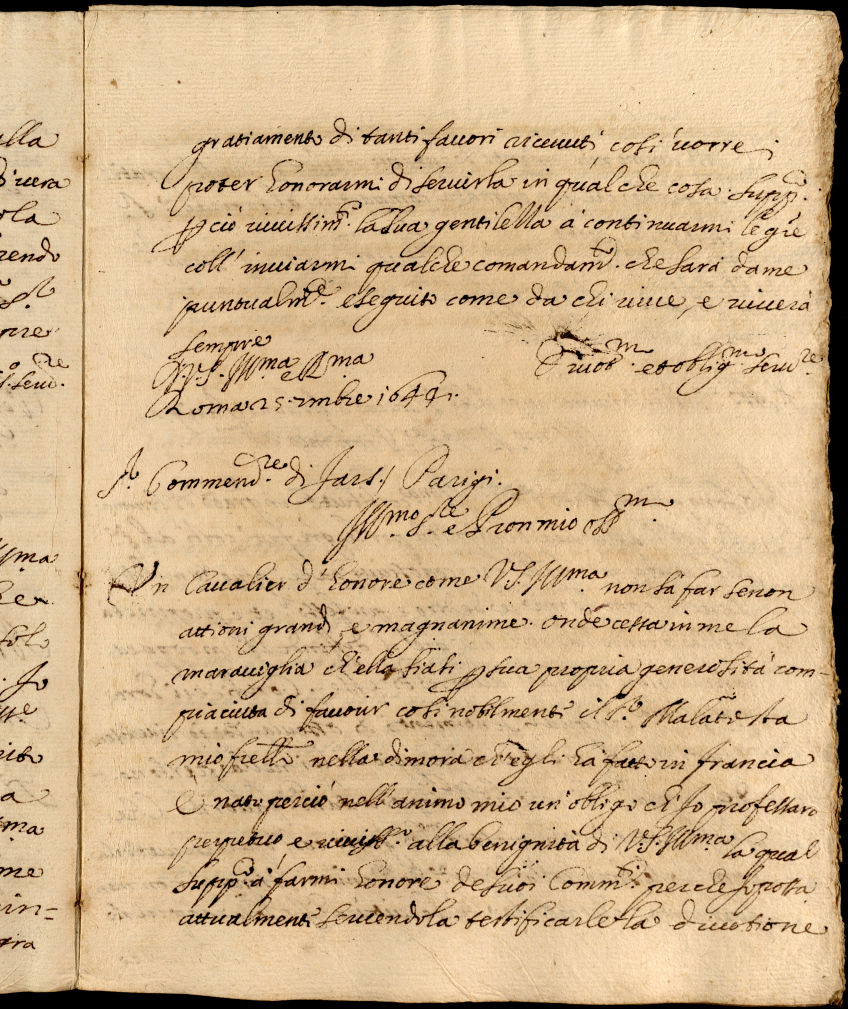 alla
di vera
ola
rendo
orre
seru.re
gratiamento di tanti fauori riceuuti cosi uorrei
poter honorarmi di seruirla in qualche cosa. Supp.co
perciò viuissim.te la sua gentilella à continuarmi le gr̃e
coll' inuiarmi qualche comandam.to che sarà da me
puntualm.te eseguito come da chi uiue, e uiuerà
sempre
D. V.S. Ill.ma e R.ma Diuot.mo et oblig.mo seru.re
Roma 25. 9mbre 1644.
S.r Commend.re di Jars / Parigi.
Ill.mo S.re e Pron mio oss.mo
Un Caualier d' honore come V.S. Ill.ma non sà far se non
attioni grandi, e magnanime. onde cessa in me la
marauiglia ch'ella siasi per sua propria generosità com=
piaciuta di fauorir cosi nobilmente il S.r Malatesta
mio fr̃ello nella dimora ch'egli hà fatto in francia
È nato perciò nell' animo mio un' obligo ch'Jo professarò
perpetuo e uiuiss.o alla benignità di V.S. Ill.ma la qual
supp.co à farmi honore de suoi Comm.ti perche io possa
attualmente seruendola testificarle la diuotione
ma
he
solo
. Jo
a
ma
me
in=
gra